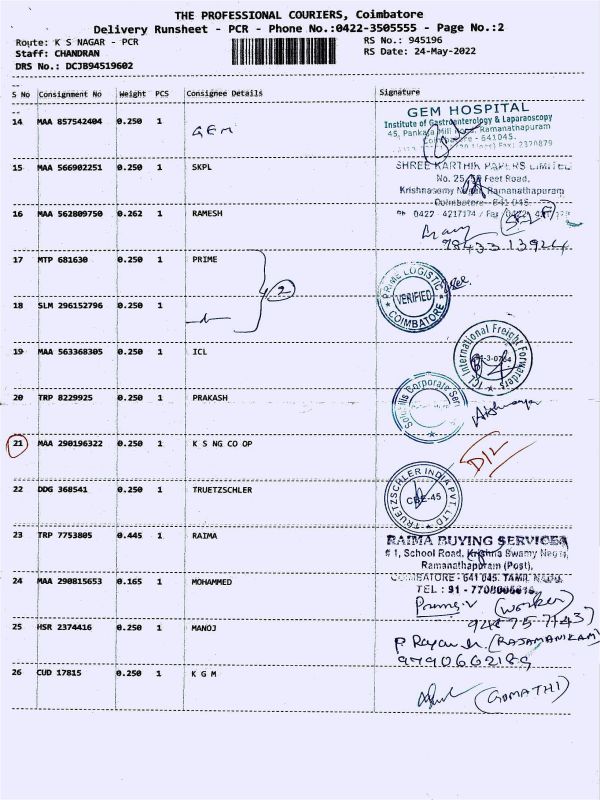 THE PROFESSIONAL COURIERS, Coimbatore
Delivery Runsheet - PCR - Phone No.:0422-3505555 - Page No.:2
Route: K S NAGAR - PCR
RS No.: 945196
Staff: CHANDRAN
RS Date: 24-May-2022
DRS No.: DCJB94519602
S No Consignment No Weight PCS Consignee Details Signature
14 MAA 857542404 0.250 1 GEM
GEM HOSPITAL
Institute of Gastroenterology & Laparoscopy
45, Pankaja Mill Road, Ramanathapuram
Coimbatore - 641045.
Fax: 2370879
15 MAA 566902251 0.250 1 SKPL
SHREE KARTHIK PAPERS LIMITED
No. 25, Feet Road,
Krishnasamy Nagar, Ramanathapuram
Coimbatore 641 045
16 MAA 562809750 0.262 1 RAMESH
Ph 0422 4217174 / Fax
(SELF)
17 MTP 681630 0.250 1 PRIME
2
PRIME LOGISTIC
VERIFIED
COIMBATORE
18 SLM 296152796 0.250 1
19 MAA 563368305 0.250 1 ICL
ICL International Freight Forwarders
20 TRP 8229925 0.250 1 PRAKASH
Corporate
21 MAA 290196322 0.250 1 K S NG CO OP
D/L
22 DDG 368541 0.250 1 TRUETZSCHLER
TRUETZSCHLER INDIA PVT. LTD
CBE-45
23 TRP 7753805 0.445 1 RAIMA
RAIMA BUYING SERVICES
# 1, School Road, Krishna Swamy Nagar,
Ramanathapuram (Post),
COIMBATORE - 641 045. TAMIL NADU.
24 MAA 298815653 0.165 1 MOHAMMED
TEL : 91 -
(WORKER)
25 HSR 2374416 0.250 1 MANOJ
(RAJAMANIKAM)
9790662189
26 CUD 17815 0.250 1 K G M
(GOMATHI)